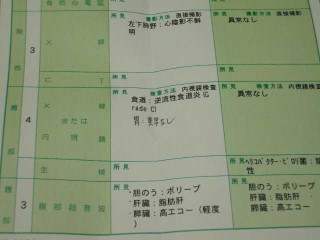 所見 撮影方法 直接撮影
左下肺野：心陰影不鮮明
所見 撮影方法 直接撮影
異常なし
3
所見 検査方法 内視鏡検査
食道：逆流性食道炎（G
rade C）
胃：異常なし
所見 検査方法 内視鏡検査
異常なし
4
または
内視鏡
生検
所見
所見
ヘリコバクター・ピロリ菌：陰
性
3
腹部超音波
所見
胆のう：ポリープ
肝臓：脂肪肝
膵臓：高エコー（軽度
）
所見
胆のう：ポリープ
肝臓：脂肪肝
膵臓：高エコー